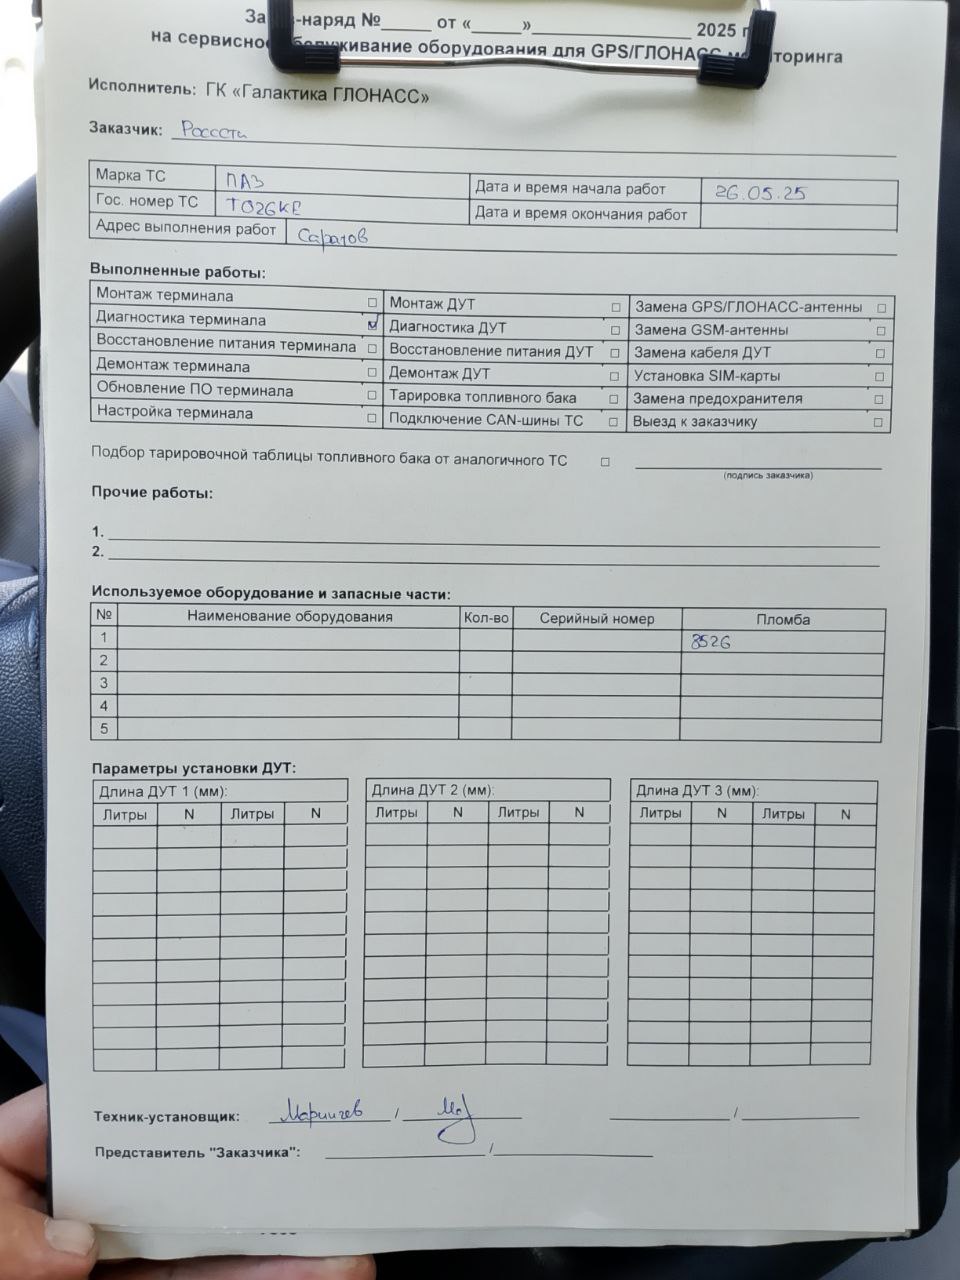 -наряд №_____ от «_____»________________ 2025 г
на сервисное обслуживание оборудования для GPS/ГЛОНАСС мониторинга
Исполнитель: ГК «Галактика ГЛОНАСС»
Заказчик: Россети
Марка ТС ПАЗ Дата и время начала работ 26.05.25
Гос. номер ТС Т026КЕ Дата и время окончания работ
Адрес выполнения работ Саратов
Выполненные работы:
Монтаж терминала ☐ Монтаж ДУТ ☐ Замена GPS/ГЛОНАСС-антенны ☐
Диагностика терминала ☑ Диагностика ДУТ ☐ Замена GSM-антенны ☐
Восстановление питания терминала ☐ Восстановление питания ДУТ ☐ Замена кабеля ДУТ ☐
Демонтаж терминала ☐ Демонтаж ДУТ ☐ Установка SIM-карты ☐
Обновление ПО терминала ☐ Тарировка топливного бака ☐ Замена предохранителя ☐
Настройка терминала ☐ Подключение CAN-шины ТС ☐ Выезд к заказчику ☐
Подбор тарировочной таблицы топливного бака от аналогичного ТС ☐
(подпись заказчика)
Прочие работы:
1.
2.
Используемое оборудование и запасные части:
№ Наименование оборудования Кол-во Серийный номер Пломба
1 8526
2
3
4
5
Параметры установки ДУТ:
Длина ДУТ 1 (мм): Длина ДУТ 2 (мм): Длина ДУТ 3 (мм):
Литры N Литры N Литры N Литры N Литры N Литры N
Техник-установщик: / /
Представитель "Заказчика": /